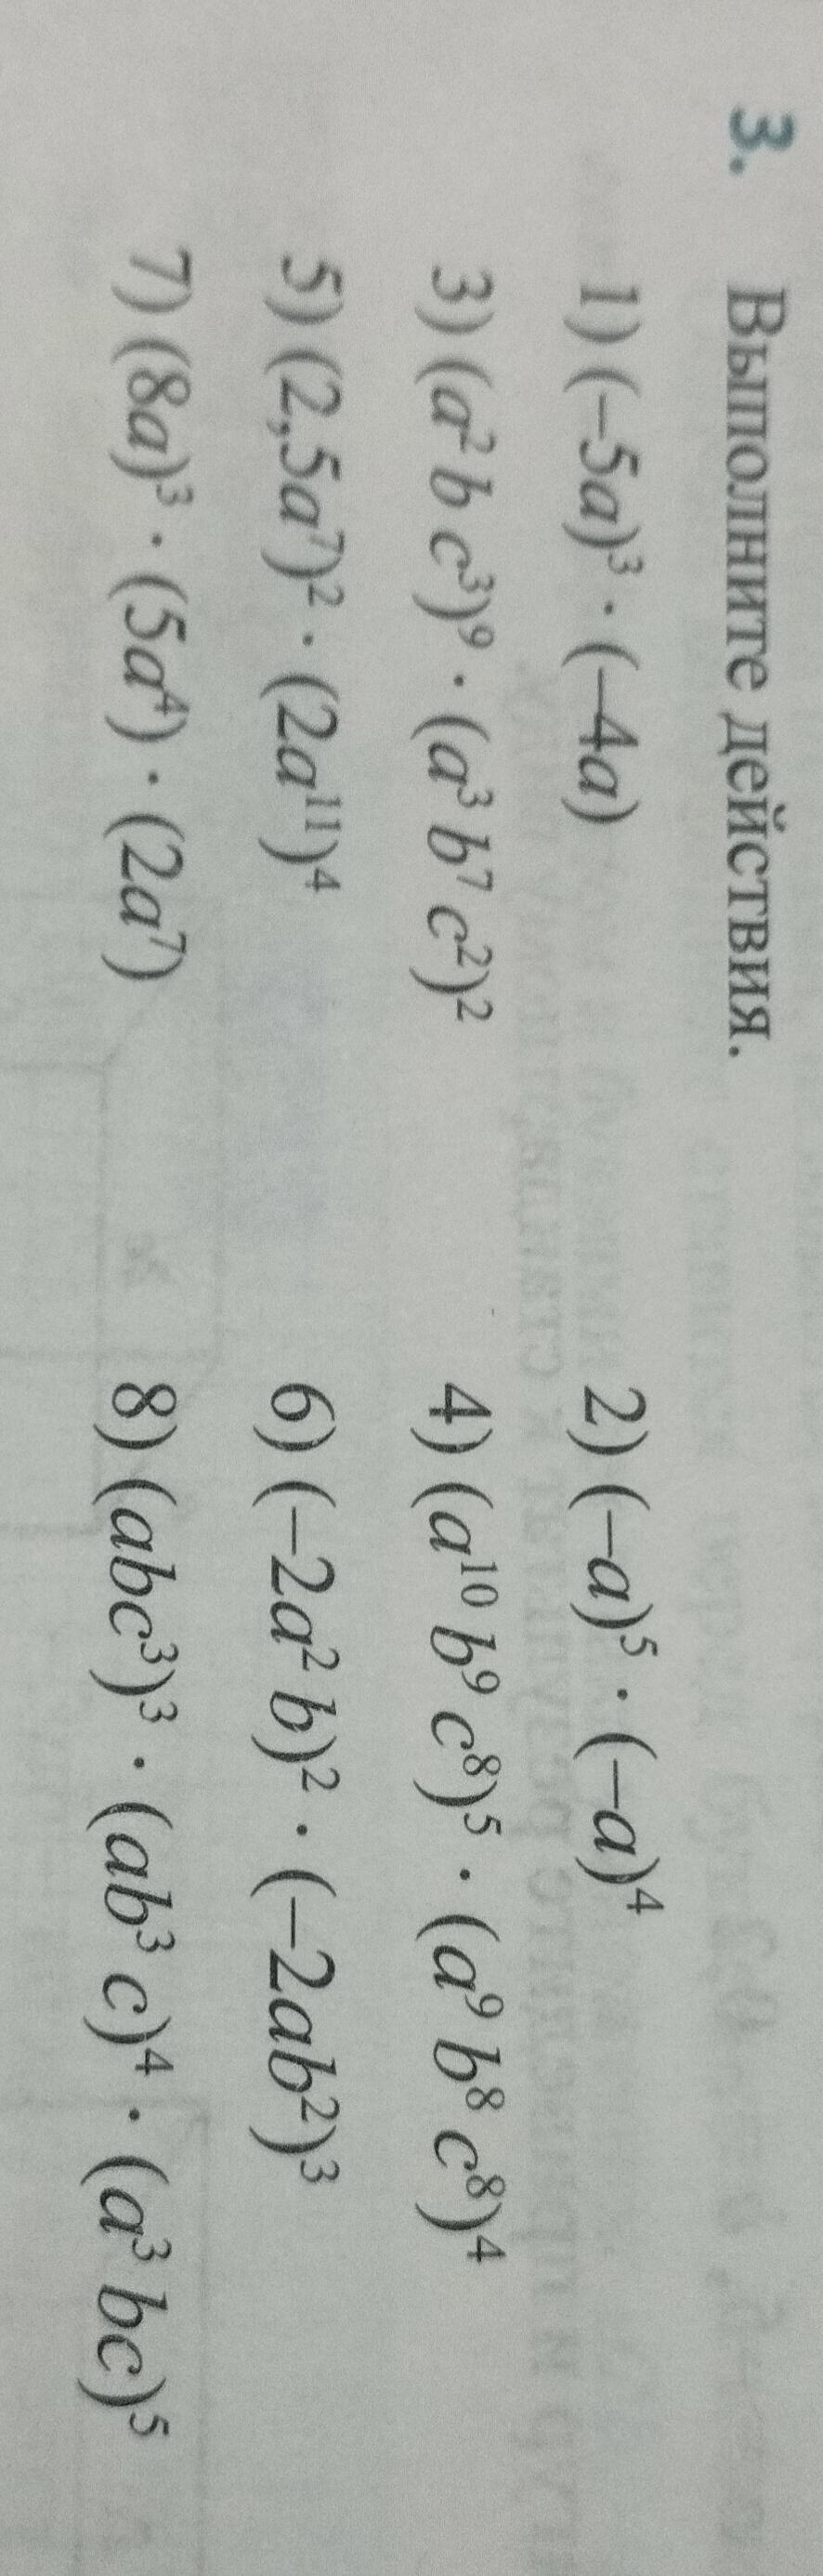 3. Выполните действия.
1) (–5a)³ · (–4a) 2) (–a)⁵ · (–a)⁴
3) (a² b c³)⁹ · (a³ b⁷ c²)² 4) (a¹⁰ b⁹ c⁸)⁵ · (a⁹ b⁸ c⁸)⁴
5) (2,5a⁷)² · (2a¹¹)⁴ 6) (–2a² b)² · (–2ab²)³
7) (8a)³ · (5a⁴) · (2a⁷) 8) (abc³)³ · (ab³ c)⁴ · (a³ bc)⁵